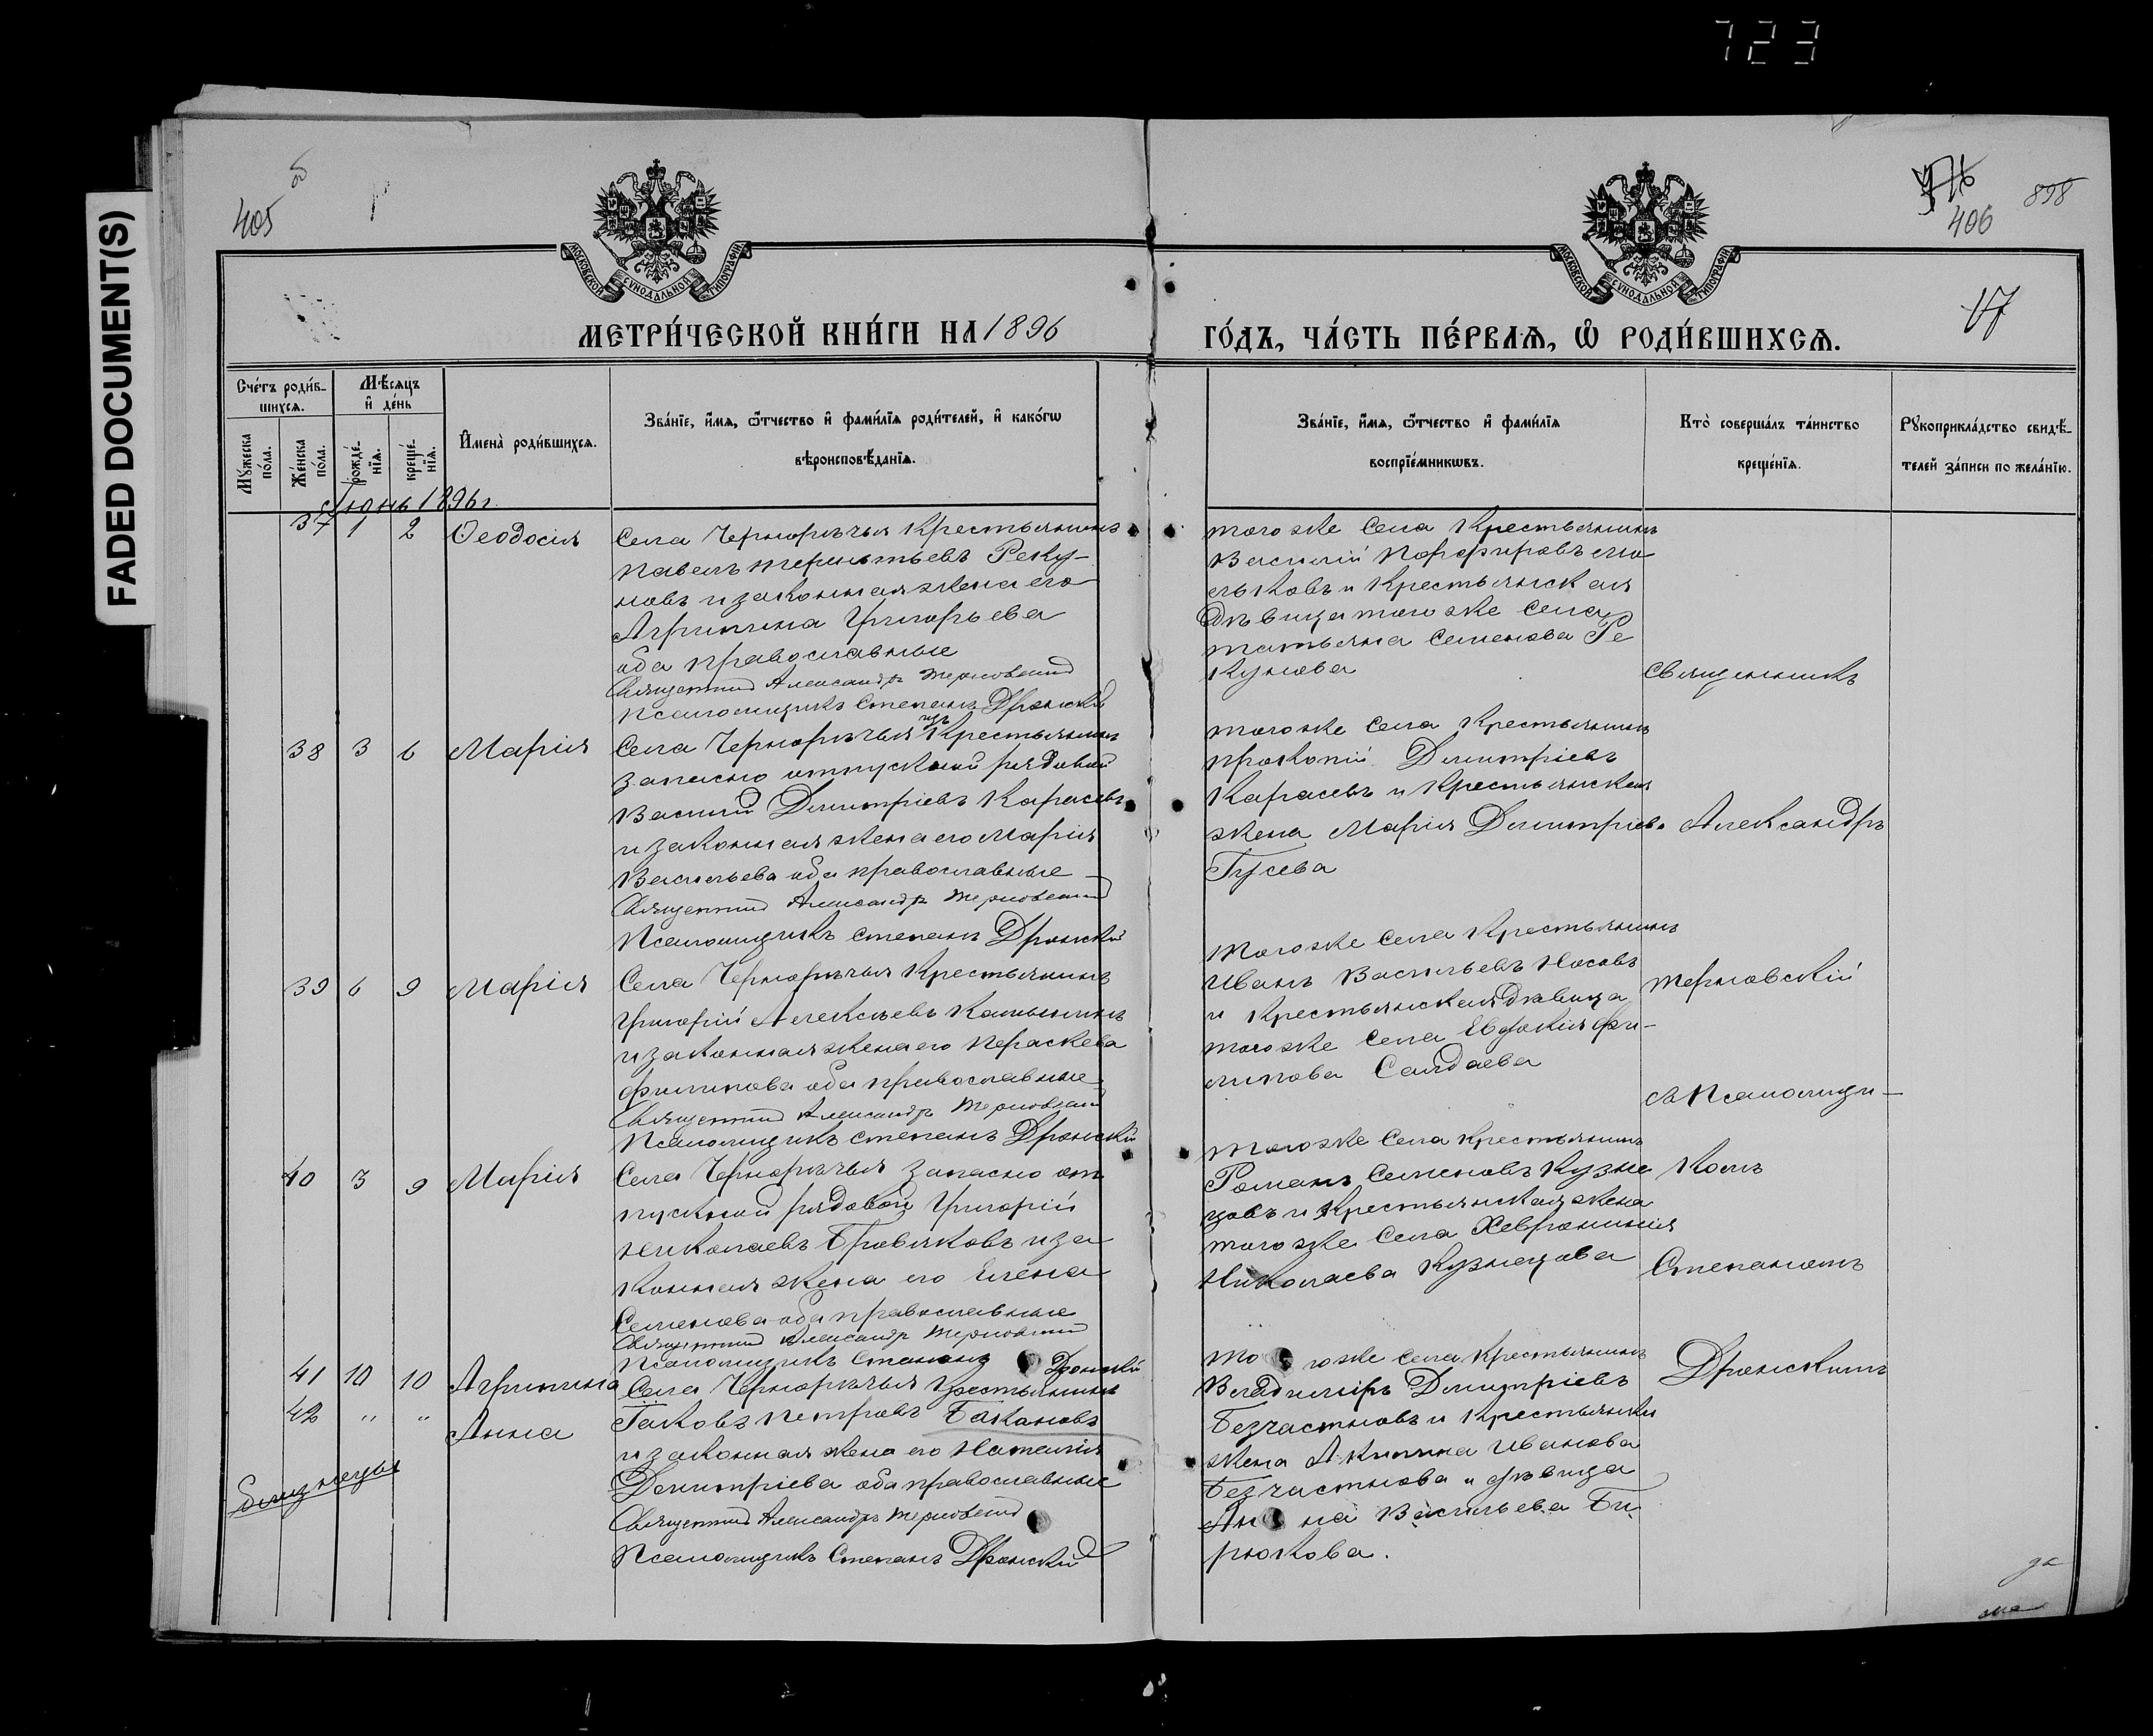 723
FADED DOCUMENT(S)
405
об
406
898
17
МОСКОВСКОЙ СѴНОДАЛЬНОЙ ТИПОГРАФІИ
МОСКОВСКОЙ СѴНОДАЛЬНОЙ ТИПОГРАФІИ
МЕТРИ́ЧЕСКОЙ КНИ́ГИ НА 1896
ГО́ДЪ, ЧА́СТЬ ПЕ́РВАѦ, Ѽ РОДИ́ВШИХСѦ.
Сче́тъ роди́в-
шихсѧ.
Мѣ́сѧцъ
и҆ де́нь
Мꙋ́жеска
по́ла.
Же́нска
по́ла.
рожде́-
нїѧ.
креще́-
нїѧ.
И҆мена̀ роди́вшихсѧ.
Зва́нїе, и҆́мѧ, ѻ҆́тчество и҆ фами́лїѧ роди́телей, и҆ како́гѡ
вѣроисповѣ́данїѧ.
Зва́нїе, и҆́мѧ, ѻ҆́тчество и҆ фами́лїѧ
воспрїе́мникѡвъ.
Кто̀ соверша́лъ та́инство
креще́нїѧ.
Рꙋкоприкла́дство свидѣ́-
телей за́писи по жела́нїю.
Іюнь 1896 г.
37 1 2 Ѳеодосія
Села Чернорѣчья Крестьянинъ
Павелъ Терентьевъ Реку-
новъ и законная жена его
Агрипина Григорьева
оба православные
Священник Александръ Терновский
Псаломщикъ Степанъ Дронский
тогоже села Крестьянинъ
Василій Порфировъ
и Крестьянская
дѣвица тогоже села
татьяна Семенова Ре
кунова
38 3 6 Марія
Села Чернорѣчья изъ Крестьянинъ
запасно отпускной рядовой
Василий Димитріевъ Карасевъ
и законная жена его Марія
Васильева оба православные
Священник Александръ Терновский
Псаломщикъ Степанъ Дронский
тогоже села Крестьянинъ
прокопій Димитріевъ
Карасевъ и Крестьянская
жена Марія Димитріева
Гусева
39 6 9 Марія
Села Чернорѣчья Крестьянинъ
Григорій Алексѣевъ
и законная жена его Параскева
филипова оба православные
Священник Александръ Терновский
Псаломщикъ Степанъ Дронский
Тогоже села Крестьянинъ
Иванъ Васильевъ Носовъ
и Крестьянская дѣвица
тогоже села Евдокия фи-
липова Салдаева
40 3 9 Марія
Села Чернорѣчья запасно от
пускной рядовой Григорій
Николаевъ Бровяковъ и за
конная жена его Елена
Семенова оба православные
Священник Александръ Терновский
Псаломщикъ Степанъ Дронский
Тогоже села крестьянинъ
Романъ Семеновъ Кузне
цовъ и Крестьянская жена
тогоже села Хеврониния
Николаева Кузнецова
41 10 10 Агрипина
42 " " Анна
близнецы
Села Чернорѣчья Крестьянинъ
Іаковъ Петровъ Бакановъ
и законная жена его Наталія
Димитріева оба православные
Священник Александръ Терновский
Псаломщикъ Степанъ Дронский
Тогоже села Крестьянинъ
Владимиръ Димитріевъ
Безчастновъ и Крестьянки
жена Акилина Иванова
Безчастнова и дѣвица
Анна Васильева Би
рюкова.
Священникъ
Александръ
терновскій
съ Псаломщи-
комъ
Степаномъ
Дронскимъ